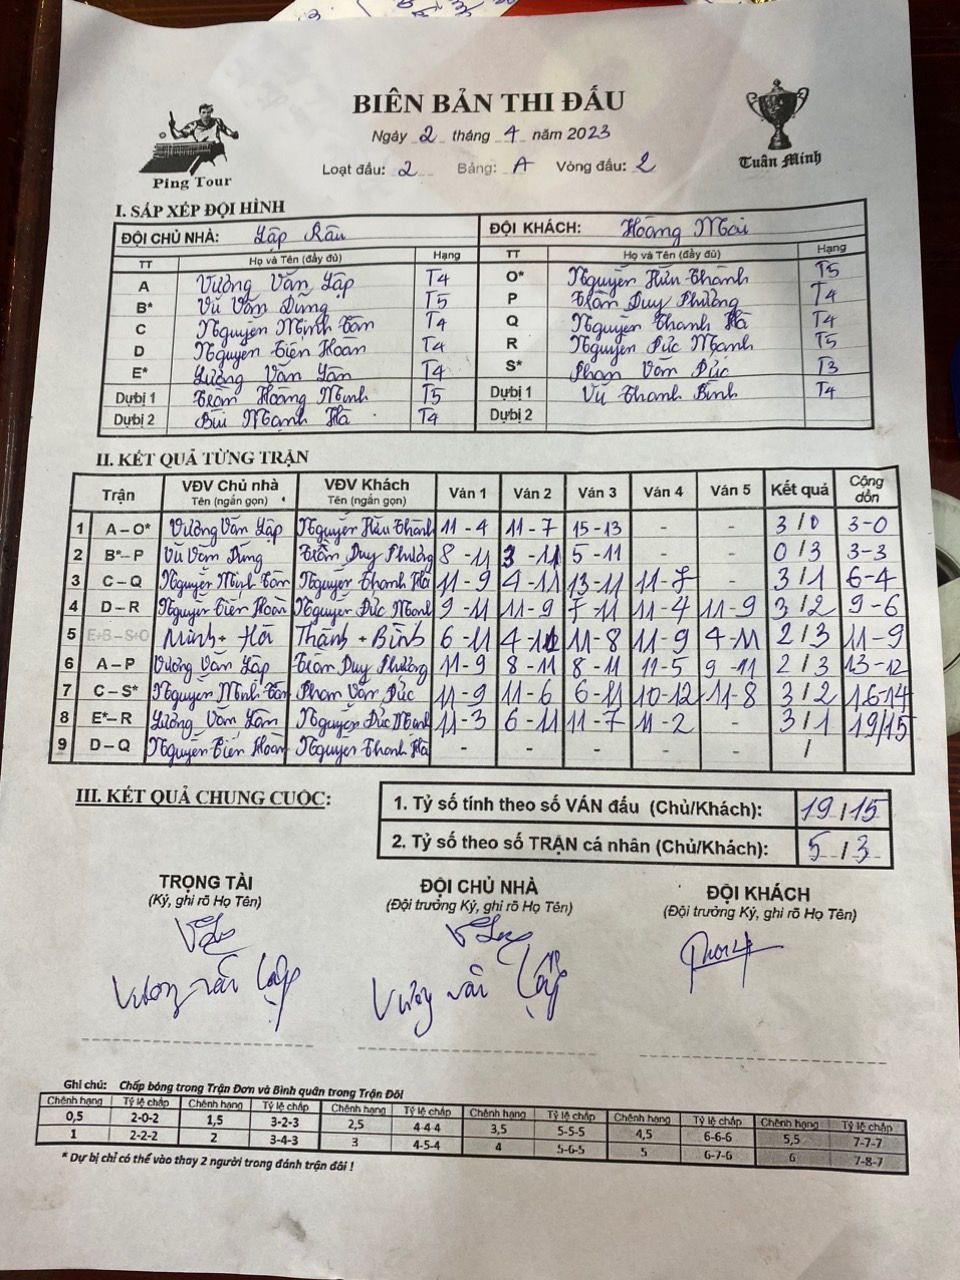 BIÊN BẢN THI ĐẤU
Ngày 2 tháng 4 năm 2023
Loạt đấu: 2 Bảng: A Vòng đấu: 2
Ping Tour
Tuấn Minh
I. SẮP XẾP ĐỘI HÌNH
ĐỘI CHỦ NHÀ: Lập Râu ĐỘI KHÁCH: Hoàng Mai
TT Họ và Tên (đầy đủ) Hạng TT Họ và Tên (đầy đủ) Hạng
A Vương Văn Lập T4 O* Nguyễn Hữu Thành T5
B* Vũ Văn Dũng T5 P Trần Duy Phương T4
C Nguyễn Minh Tân T4 Q Nguyễn Thanh Hà T4
D Nguyễn Tiến Hoàn T4 R Nguyễn Đức Mạnh T5
E* Lương Văn Lân T4 S* Phan Văn Đức T3
Dự bị 1 Trần Hoàng Minh T5 Dự bị 1 Vũ Thanh Bình T4
Dự bị 2 Bùi Mạnh Hà T4 Dự bị 2
II. KẾT QUẢ TỪNG TRẬN
Trận VĐV Chủ nhà Tên (ngắn gọn) VĐV Khách Tên (ngắn gọn) Ván 1 Ván 2 Ván 3 Ván 4 Ván 5 Kết quả Cộng dồn
1 A – O* Vương Văn Lập Nguyễn Hữu Thành 11 - 4 11 - 7 15 - 13 - - 3 / 0 3-0
2 B* – P Vũ Văn Dũng Trần Duy Phương 8 - 11 3 - 11 5 - 11 - - 0 / 3 3-3
3 C – Q Nguyễn Minh Tân Nguyễn Thanh Hà 11 - 9 4 - 11 13 - 11 11 - 7 - 3 / 1 6-4
4 D – R Nguyễn Tiến Hoàn Nguyễn Đức Mạnh 9 - 11 11 - 9 7 - 11 11 - 4 11 - 9 3 / 2 9-6
5 E+B – S+O Minh + Hà Thành + Bình 6 - 11 4 - 11 - 8 11 - 9 4 - 11 2 / 3 11-9
6 A – P Vương Văn Lập Trần Duy Phương 11 - 9 8 - 11 8 - 11 11 - 5 9 - 11 2 / 3 13-12
7 C – S* Nguyễn Minh Tân Phan Văn Đức 11 - 9 11 - 6 6 - 11 10 - 12 11 - 8 3 / 2 16-14
8 E* – R Lương Văn Lân Nguyễn Đức Mạnh 11 - 3 6 - 11 11 - 7 11 - 2 - 3 / 1 19/15
9 D – Q Nguyễn Tiến Hoàn Nguyễn Thanh Hà - - - - - /
III. KẾT QUẢ CHUNG CUỘC:
1. Tỷ số tính theo số VÁN đấu (Chủ/Khách): 19 / 15
2. Tỷ số theo số TRẬN cá nhân (Chủ/Khách): 5 / 3
TRỌNG TÀI ĐỘI CHỦ NHÀ ĐỘI KHÁCH
(Ký, ghi rõ Họ Tên) (Đội trưởng Ký, ghi rõ Họ Tên) (Đội trưởng Ký, ghi rõ Họ Tên)
Vương Văn Lập Vương Văn Lập
Ghi chú: Chấp bóng trong Trận Đơn và Bình quân trong Trận Đôi
Chênh hạng Tỷ lệ chấp Chênh hạng Tỷ lệ chấp Chênh hạng Tỷ lệ chấp Chênh hạng Tỷ lệ chấp Chênh hạng Tỷ lệ chấp Chênh hạng Tỷ lệ chấp
0,5 2-0-2 1,5 3-2-3 2,5 4-4-4 3,5 5-5-5 4,5 6-6-6 5,5 7-7-7
1 2-2-2 2 3-4-3 3 4-5-4 4 5-6-5 5 6-7-6 6 7-8-7
* Dự bị chỉ có thể vào thay 2 người trong đánh trận đôi !